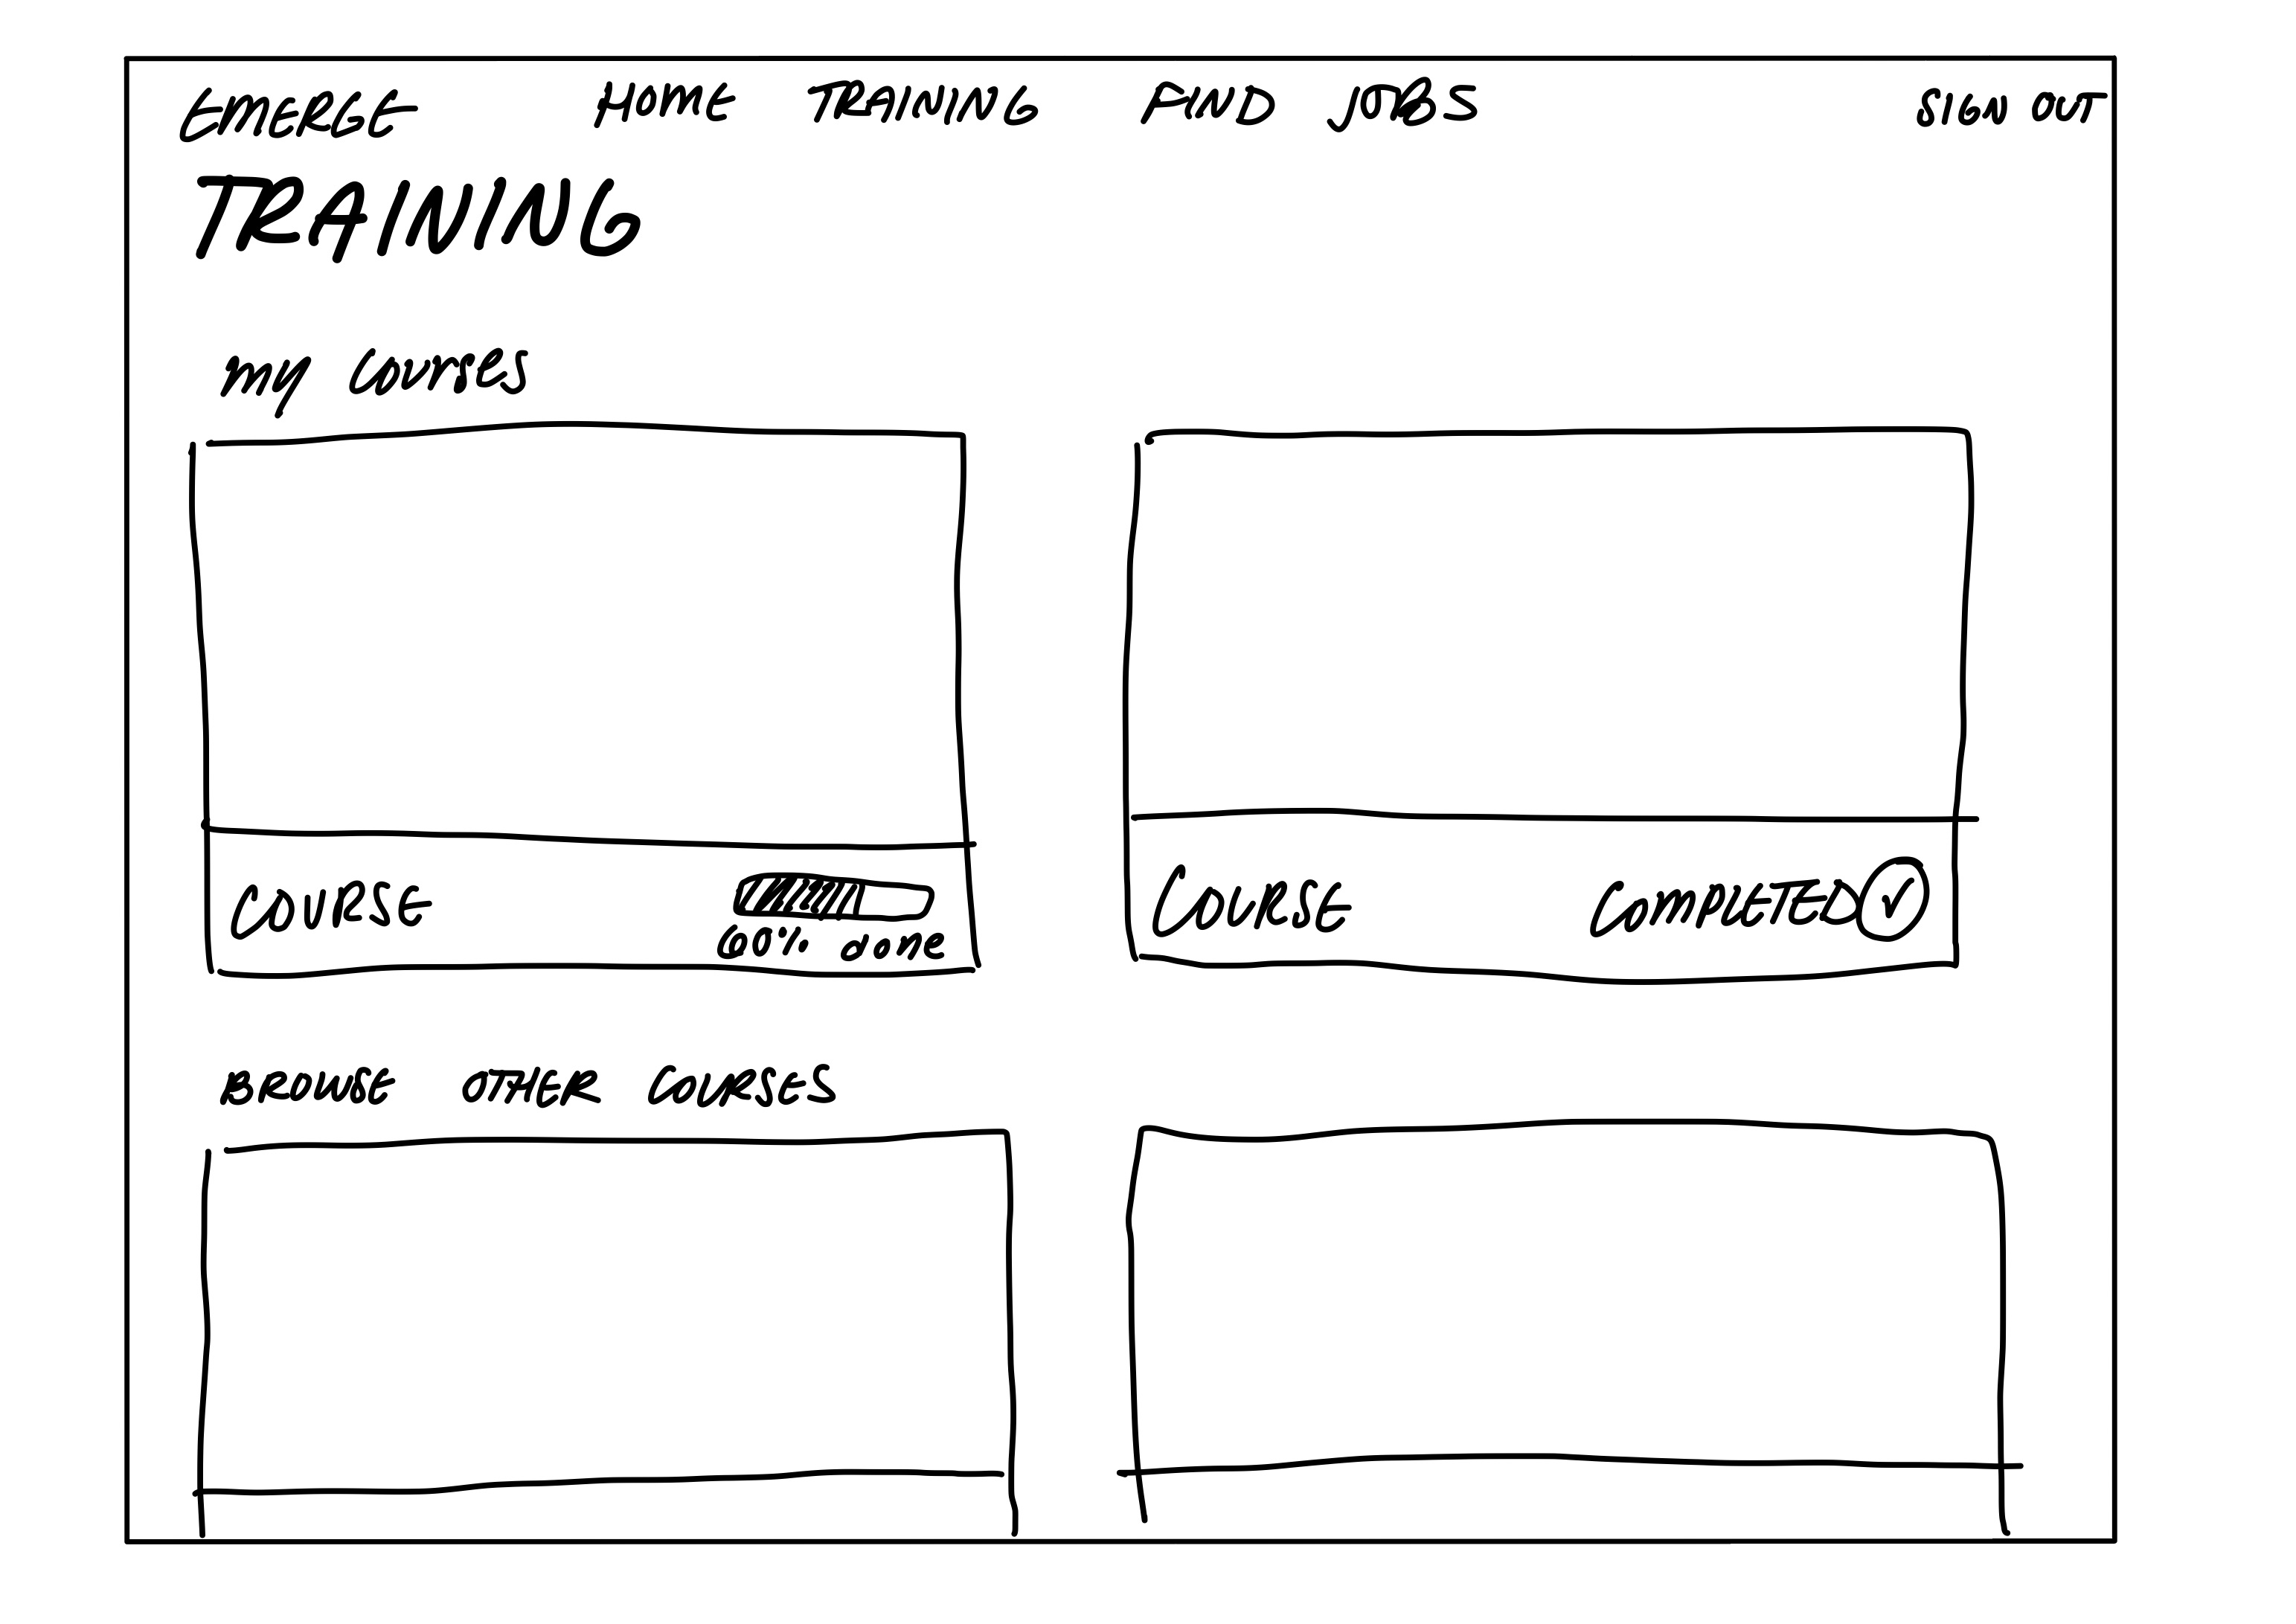 EMERGE HOME TRAINING FIND JOBS SIGN OUT
TRAINING
My courses
COURSE
60% done
COURSE COMPLETED
BROWSE OTHER COURSES